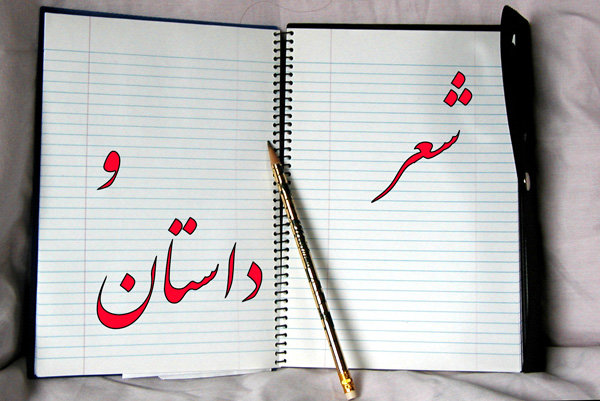 شعر
و
داستان